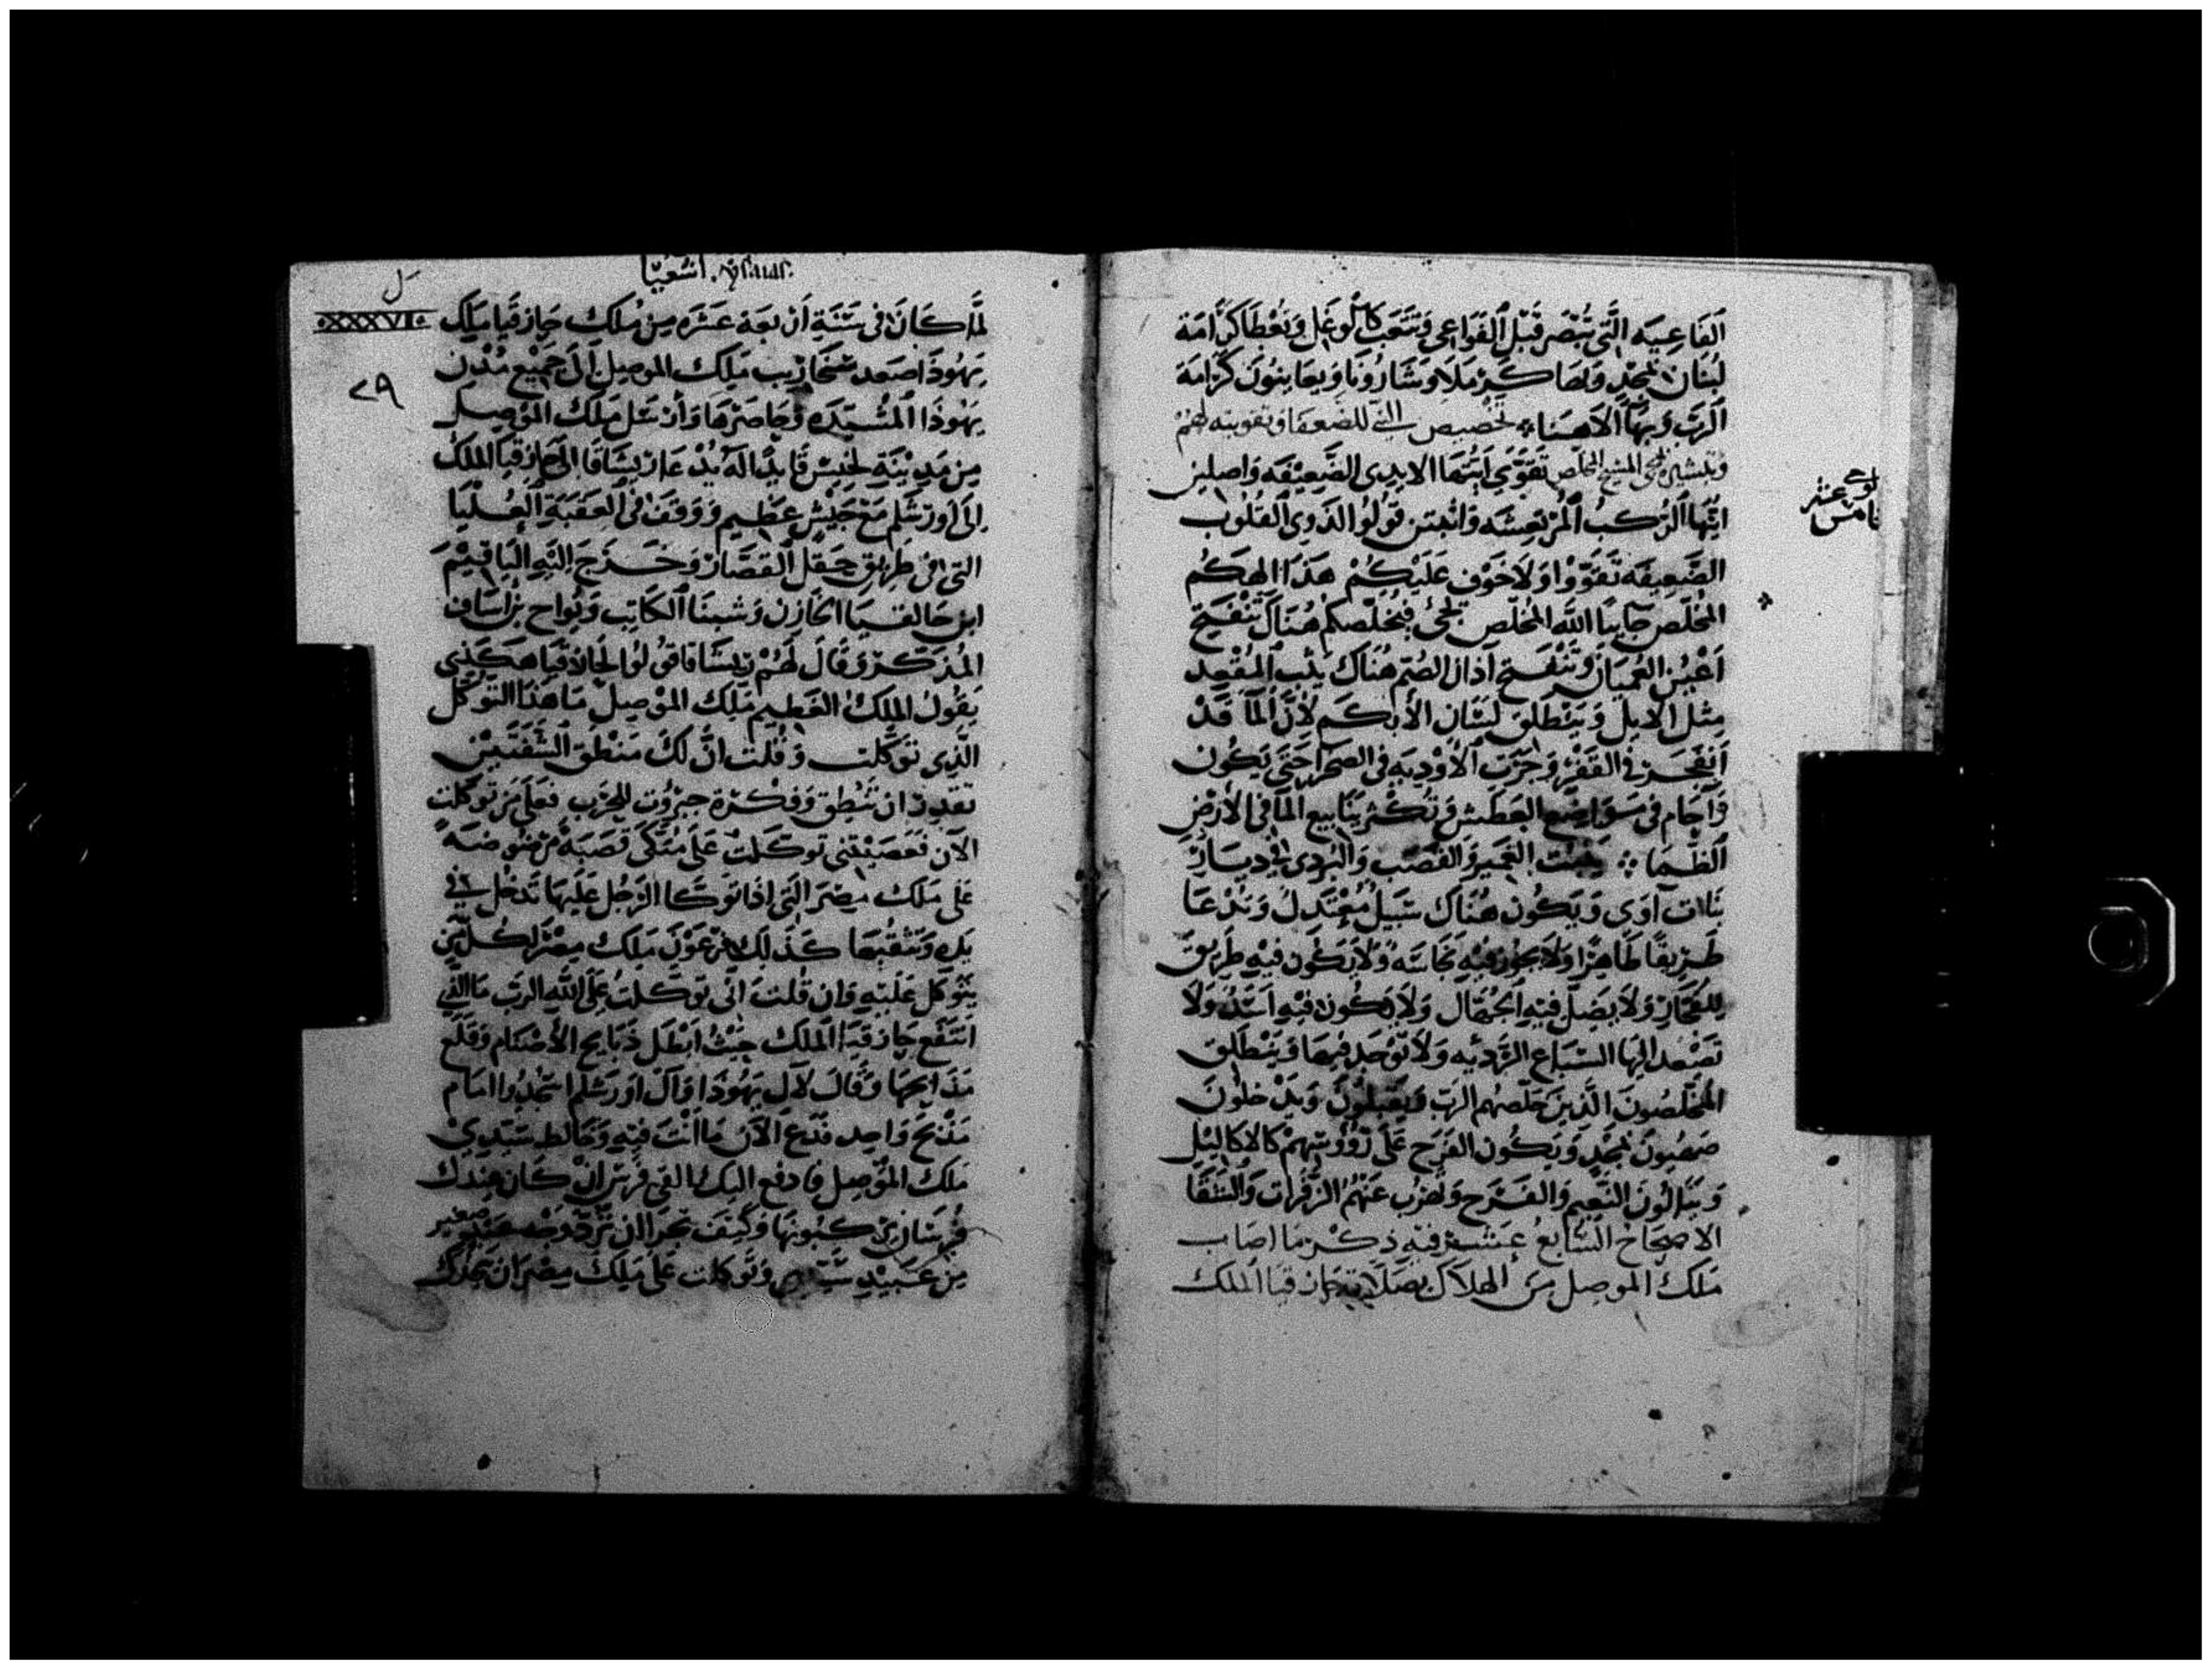 ٱلفَاعِيَه الَّتِي تُبْصِر قَبْلَ القَوَاعِي وَتَتَعَبَّكَاشْلُوعَل وَتُعْطَا كَرَامَة
لُبنَان المجْدِ وَبهَا كَرْمَلَا وَشَارُونَا وَيعَاينُون كَرَامَة
ٱلرَّبّ وَبهَا الَاهنَا تخْصيص النبى للضعفا وتقويته لهم
وتبشيره بمجى المسيح المخلّص تَقَوّي ايَّتهَا الايدى الضَّعِيْفَه وَاصلين
لوح
ايّهَا ٱلرُّكَبُ ٱلمُرْتعِشَه وَاثْبتن قُولُوا لذَوي القلُوب
خامس عشر
الضَّعِيفَه تَقَوّوْا وَلَا خَوْف عَلَيْكُمْ هَذَا الهكُم
المُخلّص جَايئًا اللّه المُخلّص يجْئ فيُخلّصكُم هُنَاكَ تَنْفَتِح
اَعْيُنُ العُميَان وَتَنْفَتح آذان الصُمّ هُنَاك يَثِب المُقْعد
مِثل الايل وَيَنْطَلِق لِسَان الأبكم لأنَّ المَآ قَدْ
اَنْفَجَر في القَفْر وَجَرَت الأَوْديَه في الصَحَرا حَتَّى يَكُون
وَآجَام في مَوَاضِع العَطَش وَتَكْثر يَنَابيع المَا في الأرْض
ٱلظّمَا وَالقَصَب وَالبَردى في ديَار
بَنَات آوَى وَيَكُون هُنَاك سَبيل مُعْتَدل وَتدْعَا
طَريقًا طَاهِرًا وَلَا يجُوز فيْهِ نجَاسَه وَلَا يَكُون فيْهِ طَرِيق
للفجّار وَلَا يَضِلّ فيْهِ الجُهَّال وَلَا يَكُون فيْهِ اَسَدٌ وَلَا
تَصْعد اليهَا السّبَاع الرّديّه وَلَا تُوْجَد فيهَا وَيَنْطَلق
المُخلّصُونَ الَّذينَ خَلّصهُم الربّ وَيُقبلُونَ وَيَدْخلُونَ
صَهْيُونَ بمجْدٍ وَيَكُون الفَرَح عَلَى رُؤُوسِهِمْ كَالاكَاليْل
وَيَنَالُونَ النَّعِيم وَالفَرَح وَتَهْرُب عَنْهُمُ الزّفَرَات وَالشَّقَا
الاصحَاح السَّابع عَشَر فيْهِ ذكْر مَا اصَاب
مَلَك الموصِل مِنَ الهلَاك بصَلَاة حَازقيَا الملك
اشعيا
ل
لمَّا كَانَ في سَنَةِ اَرْبعَة عَشَرَه مِنْ مُلك حَازقَيا مَلِك
XXXVI
يَهُوذَا صَعد سَنحَاريب مَلِك الموصِل إلَى جَمِيْع مُدْن
٢٩
يَهُوذَا المُشَيّدَه وَحَاصَرهَا وَأرْسَل مَلِك الموْصِل
مِن مَدِيْنَةِ لخيْش قَايدًا لَهُ يُدْعَا ريشَاقَا الى حَازقيَا الملك
اِلَى اورَشَلم مَعَ جَيْش عَظيم وَوَقَفَ في العَقَبَة العُلْيَا
التي في طَريْق حَقل القصَّار وَخَرَجَ اِليْهِ اليَاقيْم
ابن حَالقيَا الخازن وَشبنَا ٱلكاتِب وَيُواح بْن اسَاف
المُذَكّر وَقَالَ لَهُمْ رِيشَاقَا قُولُوا لحَازقيَا هَكَذي
يَقُولُ الملكُ العَظيم مَلِك الموْصِل مَا هَذا التوَكُّل
الَّذِي تَوَكَّلت وَقُلت انَّ لكَ مَنْطِقَ الشَّفَتَيْن
تقدر ان تَنْطِق وَفكْرَة جبرُوت للحَرْب فعَلَى مَن تَوَكّلت
الآن فعَصَيْتني تَوَكّلت عَلَى مُتكَّى قَصَبَة مَرْضُوضَه
عَلَى مَلك مِصْرَ الَّتي اذَا تَوَكَّا الرَّجُل عَليْهَا تَدخل في
يَده وَتَثقُبهَا كَذلك فِرْعَوْن مَلك مِصْر لكُلّ مَن
يَتَوَكّل عَلَيْهِ وَان قُلت انّى تَوَكَّلت عَلَى اللّه الربّ مَا الذي
انتَفَع حَازقيَا الملك حَيْثُ ابْطَل ذبَايح الأصْنَام وَقَلَع
مَذَابحهَا وَقَالَ لآل يَهُوذَا وَآل اورَشَلم اسْجُدُوا امَام
مَذْبحَ وَاحِد فَدَع الآن مَا انْتَ فيْهِ وَخَالط سَيّدِيْ
مَلك الموْصِل فادفع اليك الفَي فَرَس اِنْ كَان عِنْدك
فُرسَان يَركبُونهَا وَكَيْفَ تجْرَا ان تَرُدّ وَجْه عَبْد صغير
مِن عَبيْد سَيّدي وَتَوَكّلت عَلَى مَلِك مِصْر ان يُنْجدك